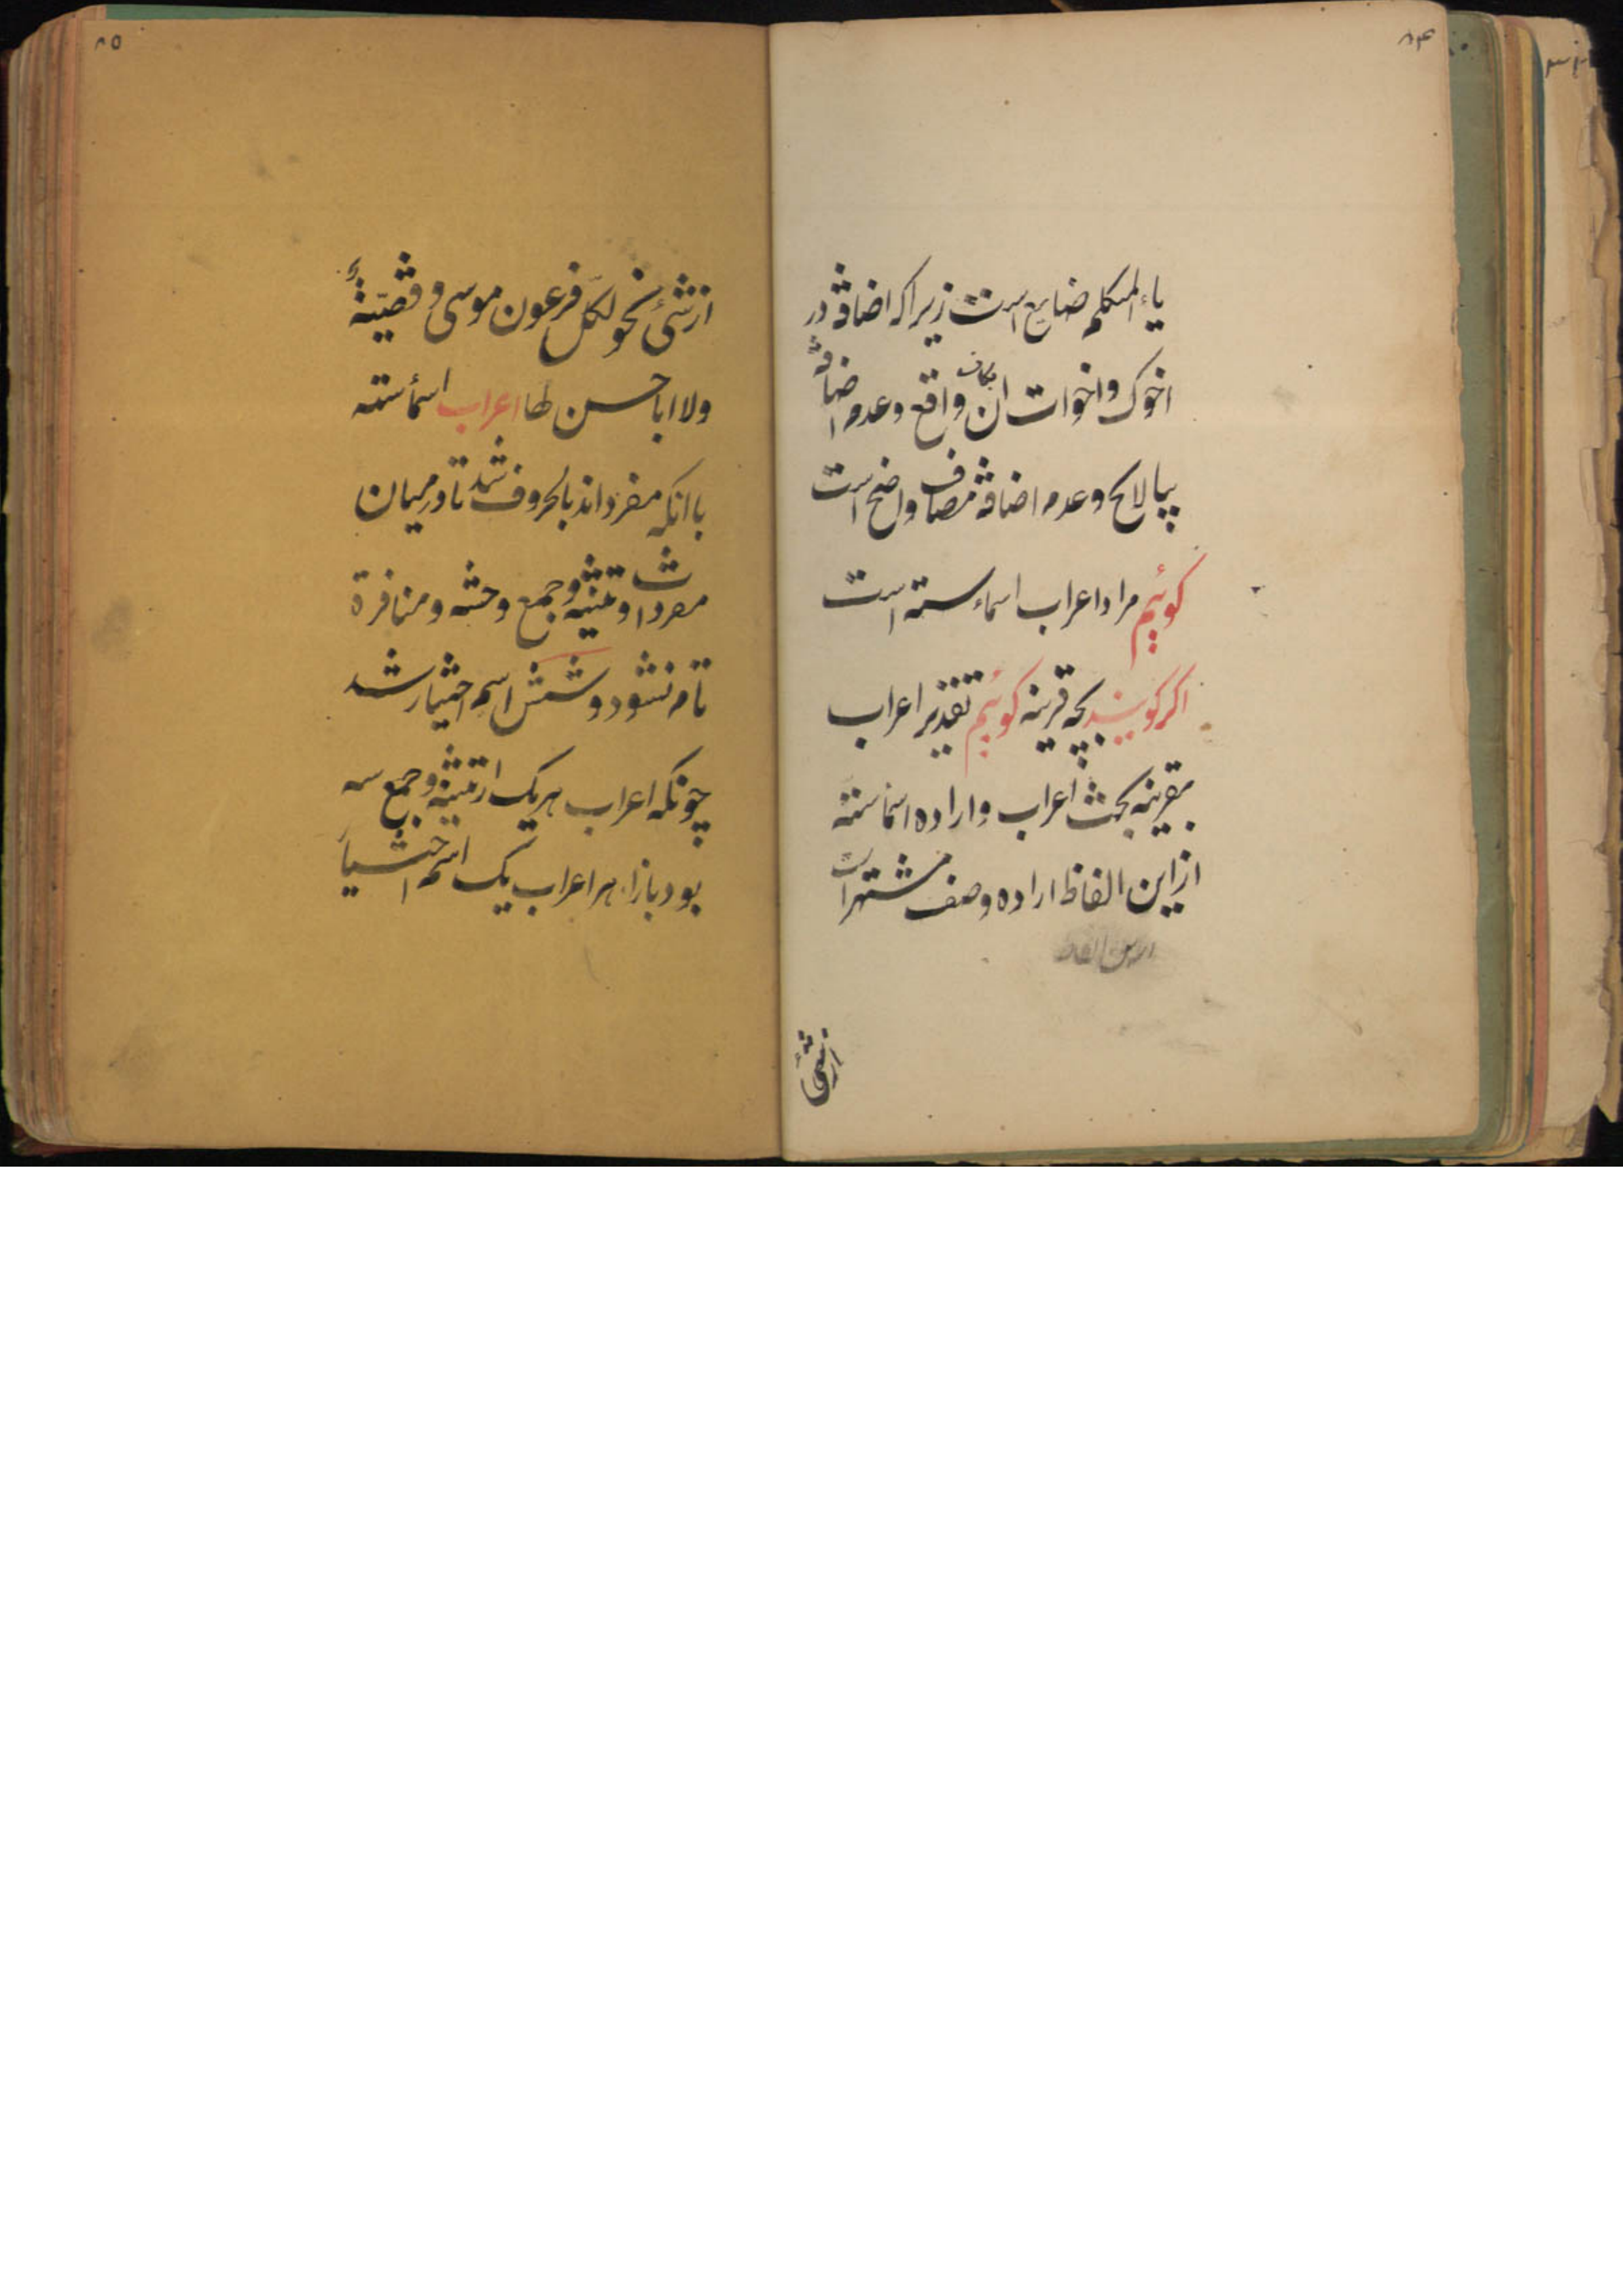 ۸۴
یاء المتکلم ضایع است زیرا که اضافة در
اخوک واخوات ان بکاف واقع وعدم اضافة
بیا لایح وعدم اضافة مضاف واضح است
کوئیم مراد اعراب اسماء سته است
اکر کویند بچه قرینه کوئیم تقدیر اعراب
بقرینه بحث اعراب واراده اسما سته
از این الفاظ اراده وصف مشتهر است
از شئ
۸۵
از شئ نحو لکل فرعون موسی و قضیّةٌ
ولا ابا حسن لها اعراب اسمأ سته
با انکه مفرداند بالحروف شد تا درمیان
مفردات و تثنیه وجمع وحشه ومنافرة
تام نشود و شش اسم اختیار شد
چونکه اعراب هریک از تثنیه وجمع سه
بود بازاء هر اعراب یک اسم اختیار